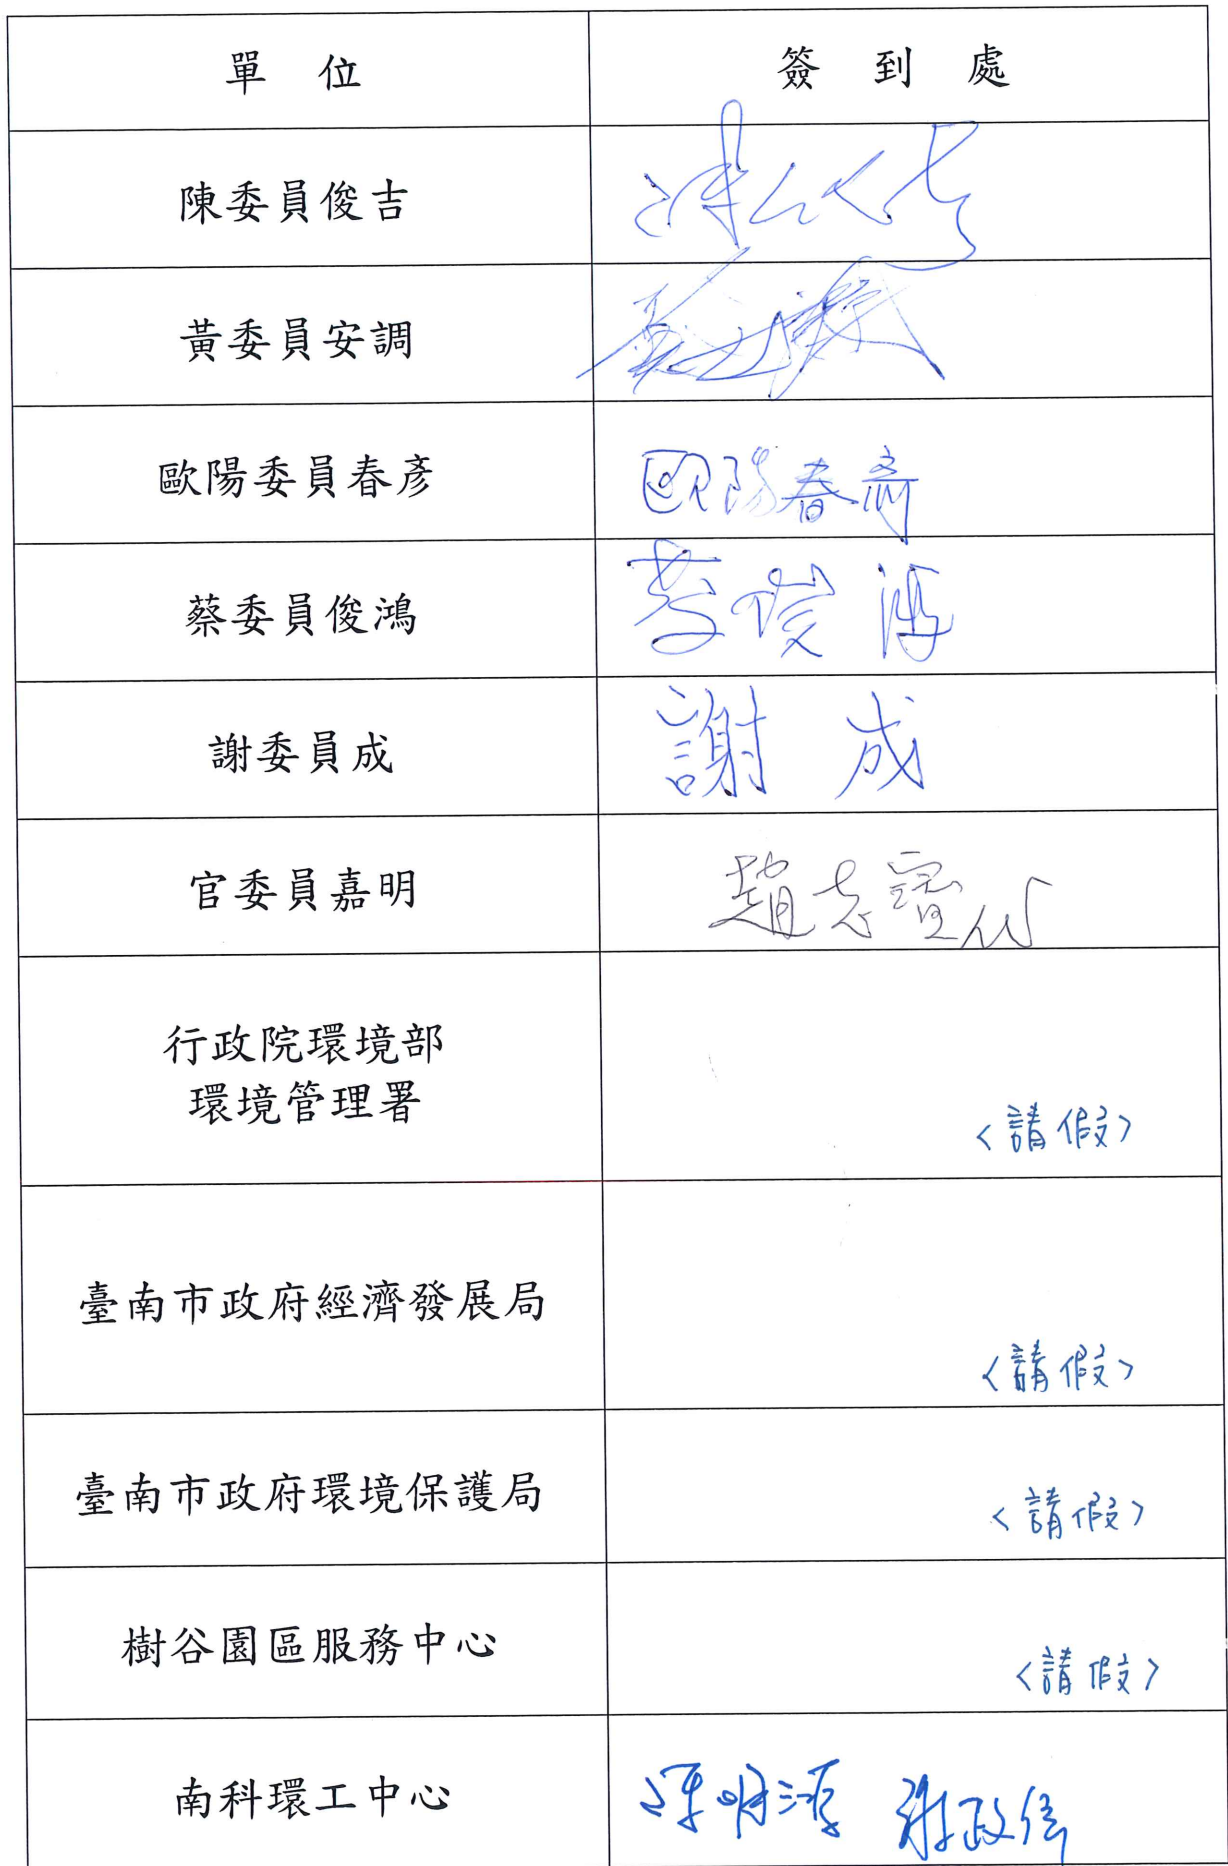 單位 簽到處
陳委員俊吉
黃委員安調
歐陽委員春彥 歐陽春彥
蔡委員俊鴻 蔡俊鴻
謝委員成 謝成
官委員嘉明 趙志寶
行政院環境部
環境管理署
<請假>
臺南市政府經濟發展局
<請假>
臺南市政府環境保護局 <請假>
樹谷園區服務中心 <請假>
南科環工中心